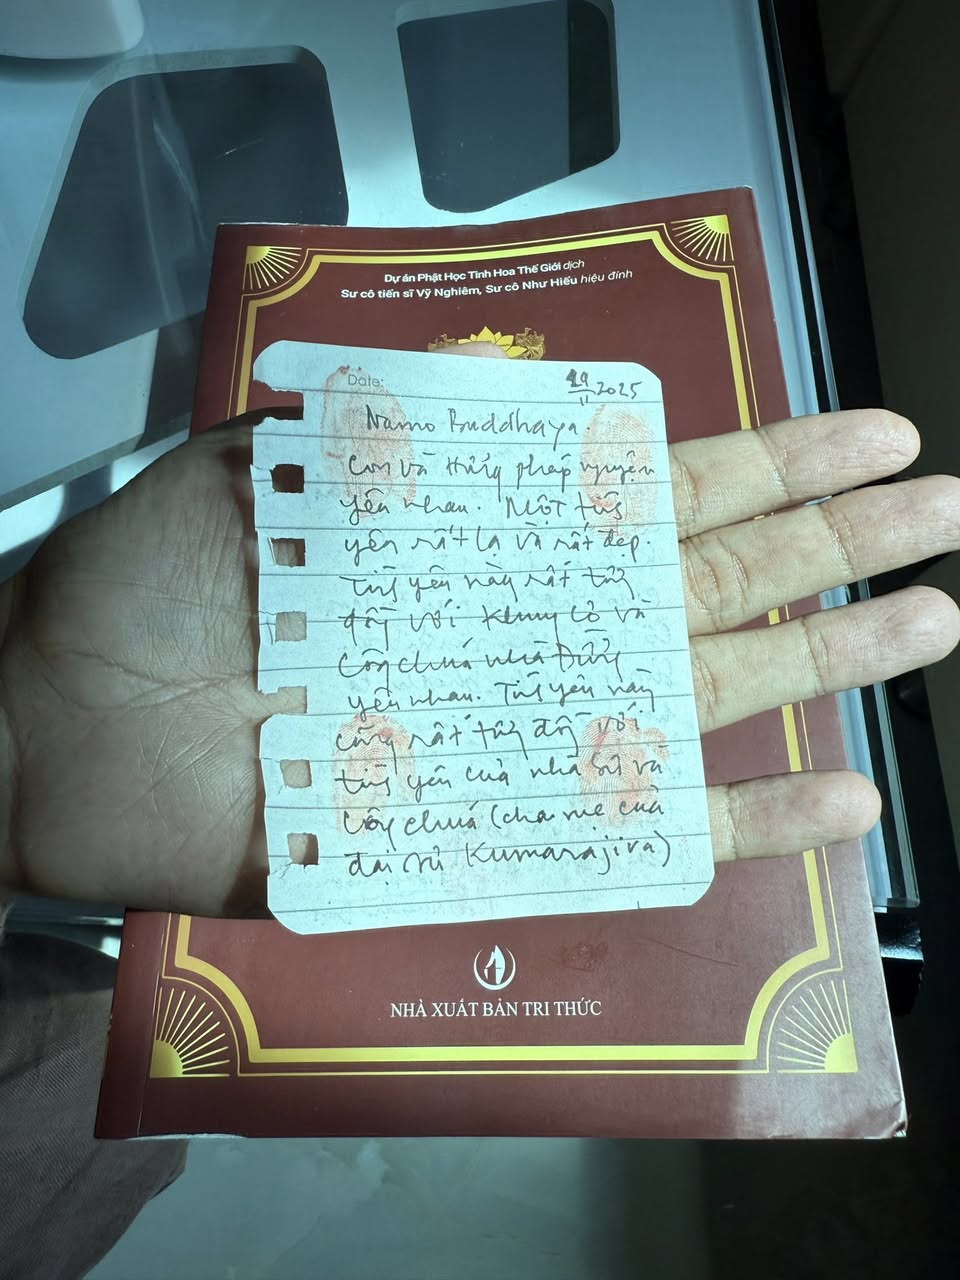 Dự án Phật Học Tinh Hoa Thế Giới dịch
Sư cô tiến sĩ Vỹ Nghiêm, Sư cô Như Hiếu hiệu đính
Date:
29/11 2025
Namo Buddhaya.
Con và Hưng pháp nguyện
yêu nhau. Một tình
yêu rất lạ và rất đẹp.
Tình yêu này rất tương
đồng với Khung Lò và
Công chúa nhà Đường
yêu nhau. Tình yêu này
cũng rất tương đồng với
tình yêu của nhà sư và
Công chúa (cha mẹ của
đại sư Kumarajiva)
NHÀ XUẤT BẢN TRI THỨC